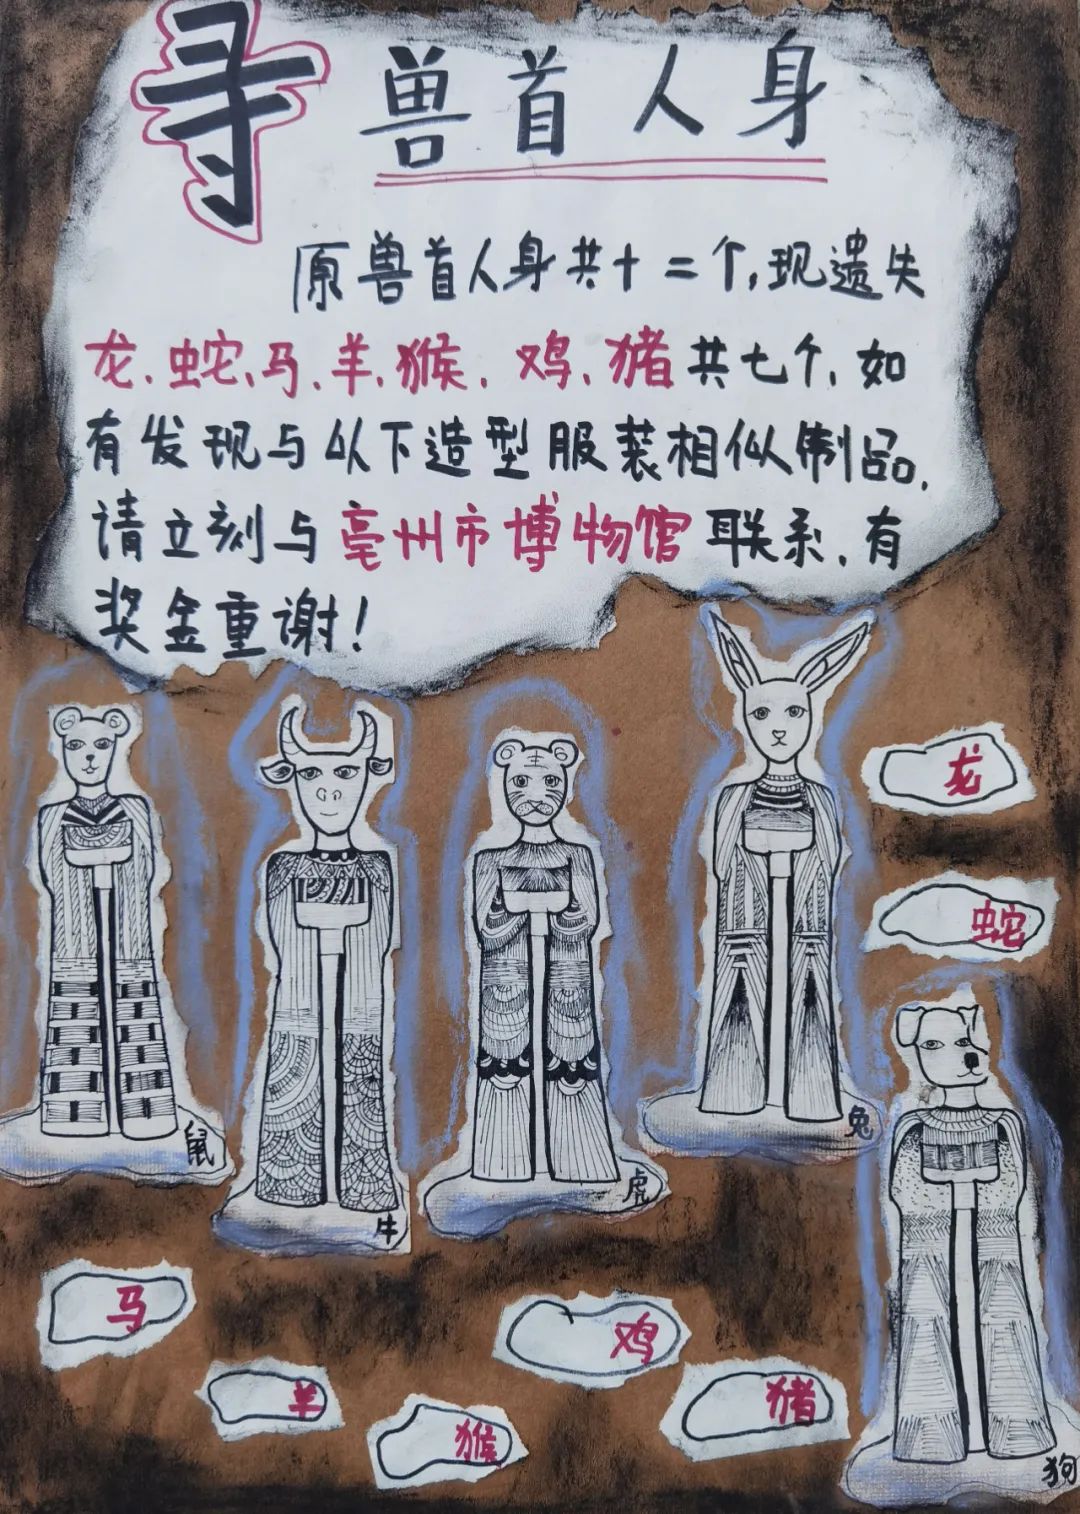 寻 兽首人身
原兽首人身共十二个,现遗失
龙、蛇、马、羊、猴、鸡、猪共七个,如
有发现与以下造型服装相似制品,
请立刻与亳州市博物馆联系,有
奖金重谢!
龙
蛇
鼠
牛
虎
兔
狗
马
羊
猴
鸡
猪